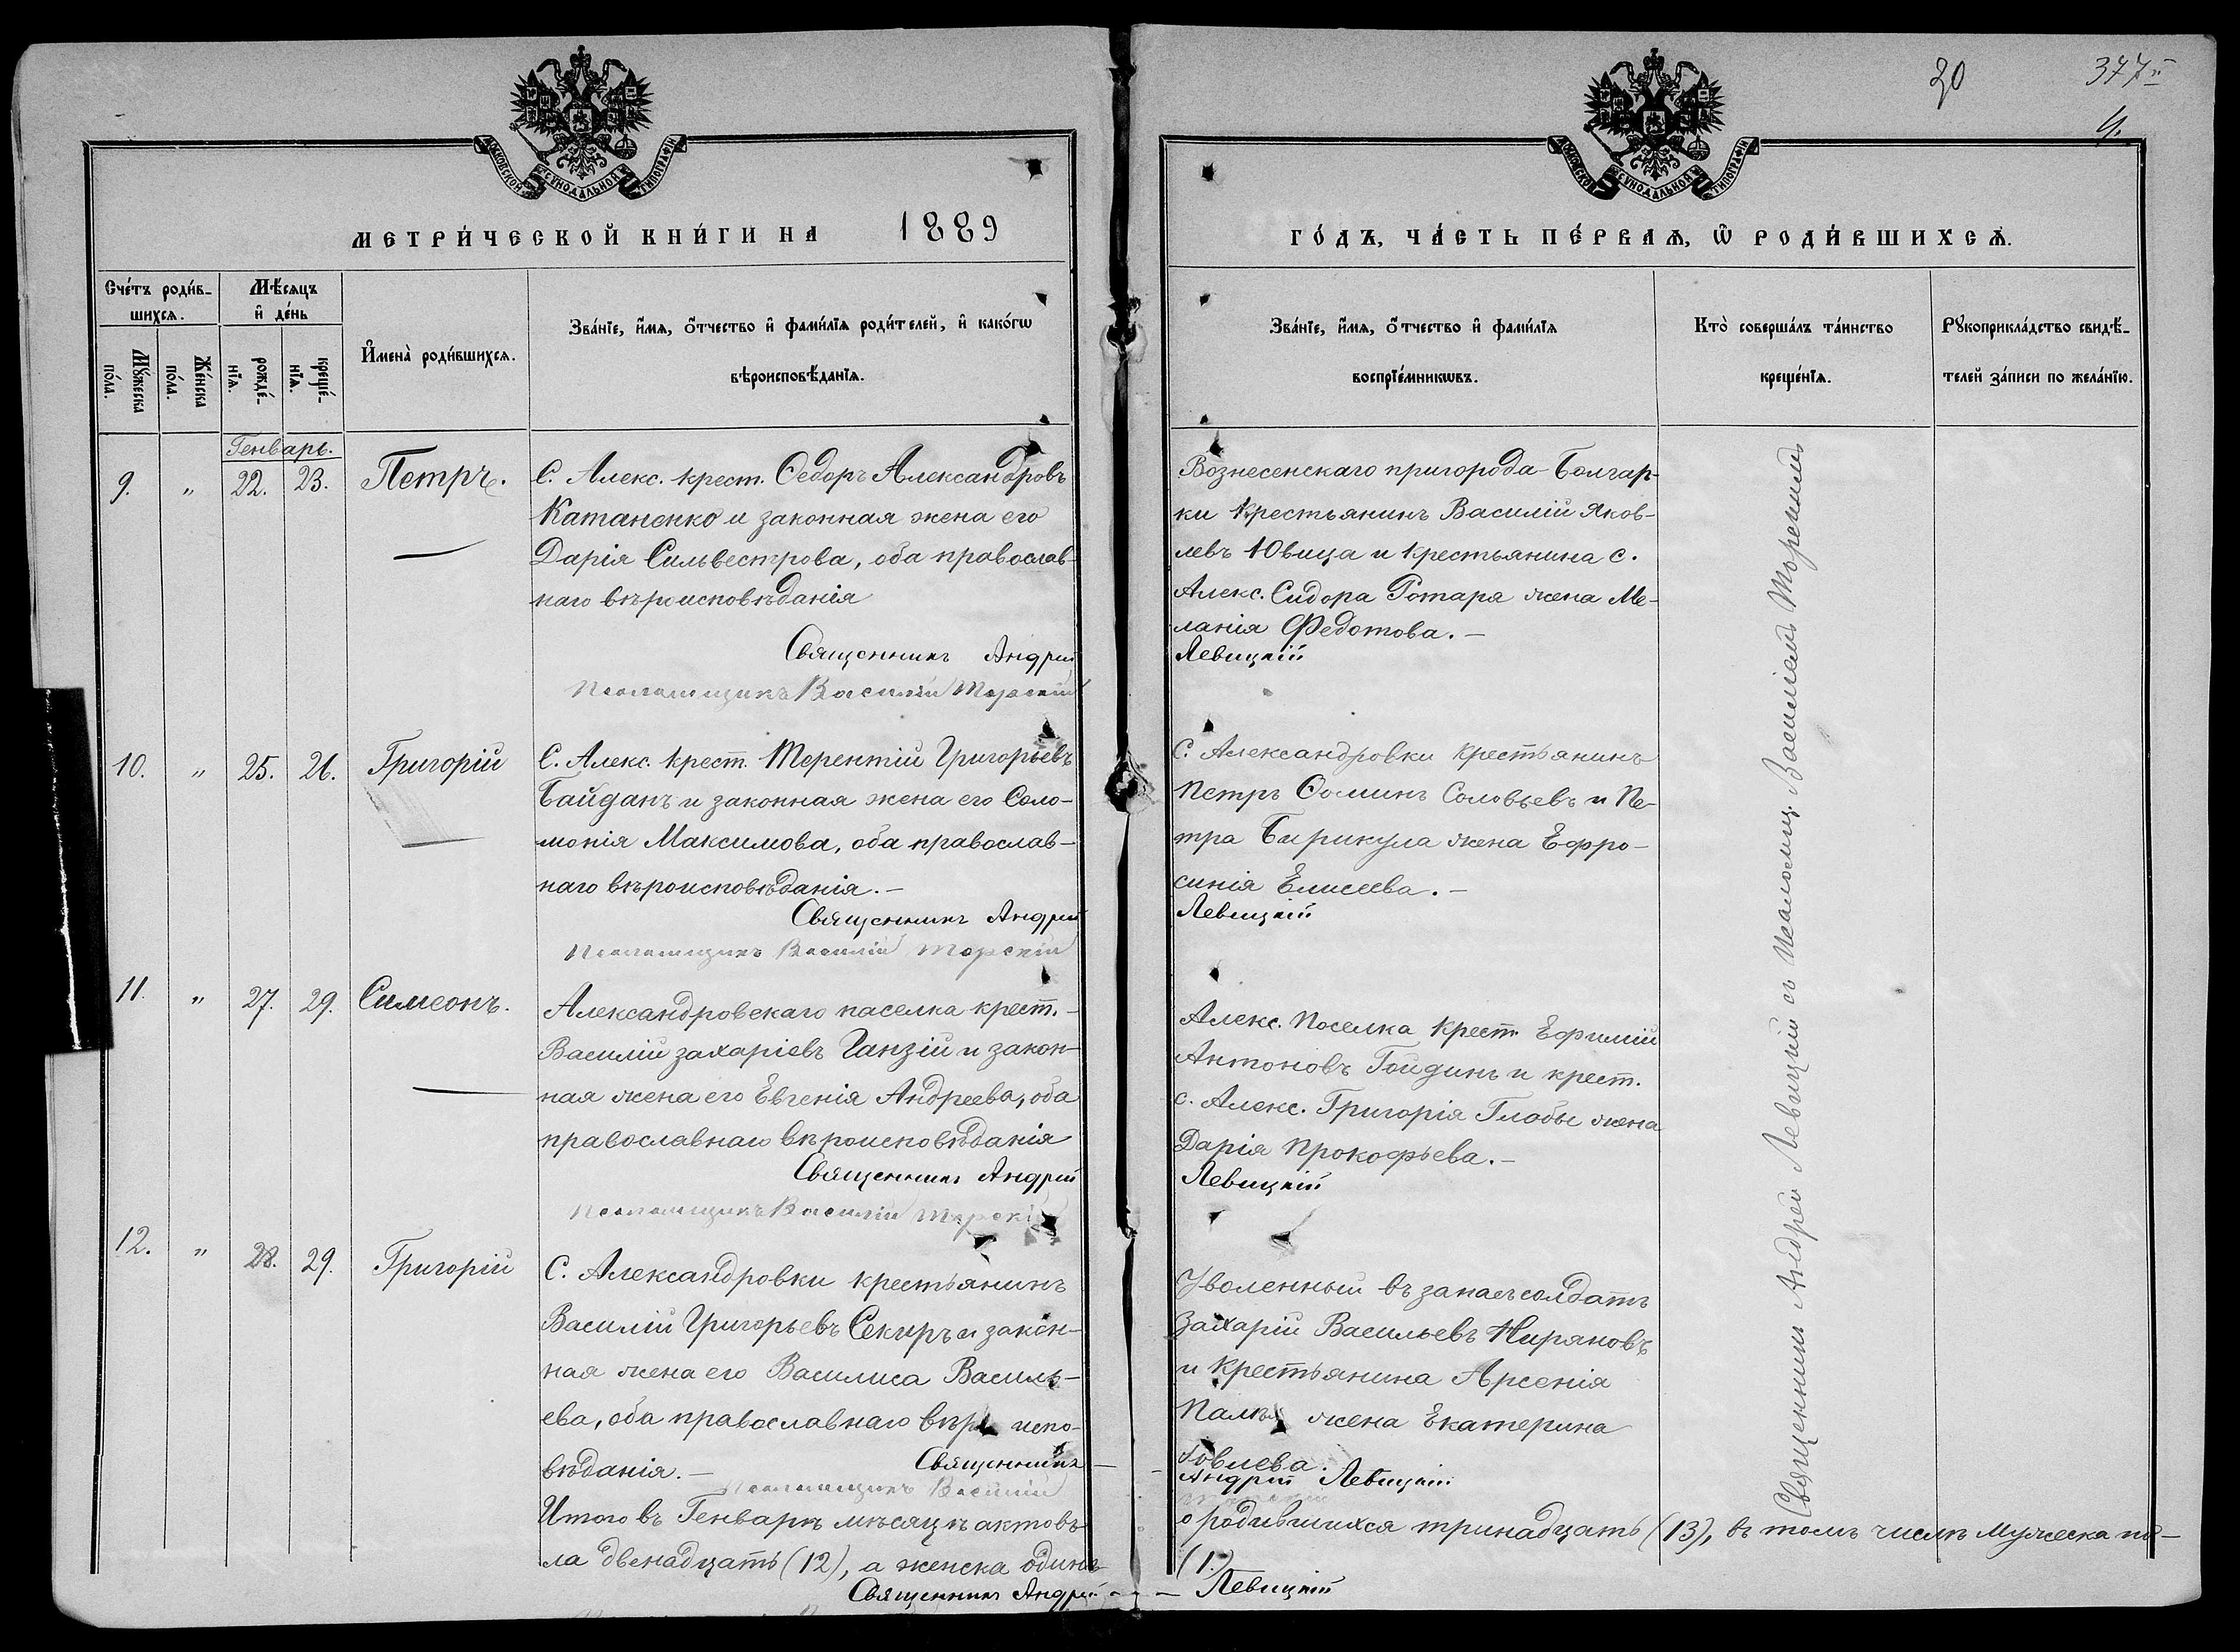 20
377
4.
МОСКОВСКОЙ СѴНОДАЛЬНОЙ ТИПОГРАФІИ
МОСКОВСКОЙ СѴНОДАЛЬНОЙ ТИПОГРАФІИ
МЕТРИ́ЧЕСКОЙ КНИ́ГИ НА 1889
ГО́ДЪ, ЧА́СТЬ ПЕ́РВАѦ, Ѡ҆ РОДИ́ВШИХСѦ.
Сче́тъ роди́в-
шихсѧ.
Мѣ́сѧцъ
и҆ де́нь
Мꙋ́жеска
по́ла.
Же́нска
по́ла.
рожде́-
нїѧ.
креще́-
нїѧ.
И҆мена̀ роди́вшихсѧ.
Зва́нїе, и҆́мѧ, ѻ҆́тчество и҆ фами́лїѧ роди́телей, и҆ како́гѡ
вѣроисповѣ́данїѧ.
Зва́нїе, и҆́мѧ, ѻ҆́тчество и҆ фами́лїѧ
воспрїе́мникѡвъ.
Кто̀ соверша́лъ та́инство
креще́нїѧ.
Рꙋкоприкла́дство свидѣ́-
телей за́писи по жела́нїю.
Генварь.
9. " 22. 23. Петръ.
С. Алекс. крест. Ѳедоръ Александровъ
Катаненко и законная жена его
Дарія Сильвестрова, оба православ-
наго вѣроисповѣданія
Священникъ Андрей
Псаломщикъ Василій Торскій
Вознесенскаго пригорода Болгар-
ки крестьянинъ Василій Яков-
левъ Ювица и крестьянина с.
Алекс. Сидора Ротаря жена Ме-
ланія Федотова. -
Левицкій
10. " 25. 26. Григорій
С. Алекс. крест. Терентій Григорьевъ
Байданъ и законная жена его Соло-
монія Максимова, оба православ-
наго вѣроисповѣданія. -
Священникъ Андрей
Псаломщикъ Василій Торскій
С. Александровки крестьянинъ
Петръ Ѳоминъ Соловьевъ и Пе-
тра Бирикула жена Ефро-
синія Елисеева. -
Левицкій
11. " 27. 29. Симеонъ.
Александровскаго поселка крест. -
Василій Захаріевъ Ганзій и закон-
ная жена его Евгенія Андреева, оба
православнаго вѣроисповѣданія
Священникъ Андрей
Псаломщикъ Василій Торскій
Алекс. Поселка крест. Ефимій
Антоновъ Гойдинъ и крест.
с. Алекс. Григорія Глобы жена
Дарія Прокофьева. -
Левицкій
12. " 28. 29. Григорій
С. Александровки крестьянинъ
Василій Григорьевъ Секиръ и закон-
ная жена его Василиса Василь-
ева, оба православнаго вѣро испо-
вѣданія. - Священникъ -
Псаломщикъ Василій
Уволенный въ запасъ солдатъ
Захарій Васильевъ
и крестьянина Арсенія
жена Екатерина
Андрей Левицкій
Священникъ Андрей Левицкій съ Псаломщ. Василіемъ Торскимъ
Итого въ Генварѣ мѣсяцѣ актовъ о родившихся тринадцать (13), въ томъ числѣ мужеска по-
ла двенадцать (12), а женска одинъ (1.)
Священникъ Андрей - - Левицкій